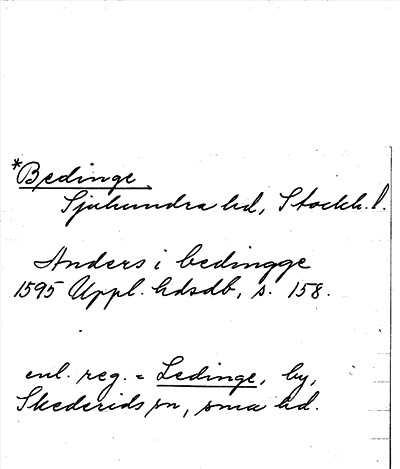 *Bedinge.
Sjuhundra hd, Stockh. l.
Anders i bedingge
1595 Uppl. hdsdb, s. 158.
enl. reg. = Ledinge, by,
Skederids sn, sma hd.